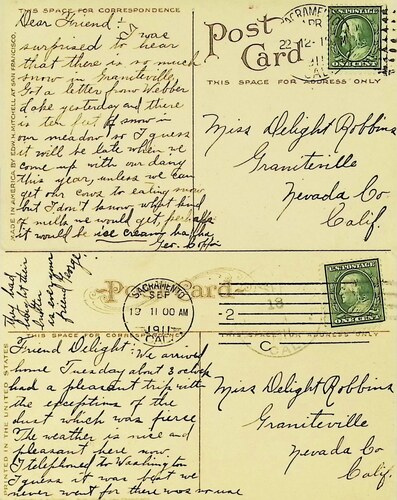 THIS SPACE FOR CORRESPONDENCE
Dear Friend:
I was
surprised to hear
that there is so much
snow in Graniteville.
Got a letter from Webber
Lake yesterday and there
is ten feet of snow in
our meadow so I guess
it will be late when we
come up with our dairy
this year, unless we can
get our cows to eating snow
but I don't know what kind
of milk we would get, perhaps
it would be ice cream ha ha
Geo.
MADE IN AMERICA BY EDW. H. MITCHELL AT SAN FRANCISCO.
Post
Card
THIS SPACE FOR ADDRESS ONLY
SACRAMENTO
22
1911
CAL
U.S. POSTAGE
ONE CENT
Miss Delight Robbins
Graniteville
Nevada Co.
Calif.
They had
better
is
your
friend
Post Card
SACRAMENTO
SEP
11 00 AM
1911
CAL.
2
C
18
CAL
U.S. POSTAGE
ONE CENT
THIS SPACE FOR CORRESPONDENCE
FOR ADDRESS ONLY
PRINTED IN THE UNITED STATES
Friend Delight: We arrived
home Tuesday about 3 o'clock
had a pleasant trip with
the exception of the
dust which was fierce
The weather is nice and
pleasant here now.
I telephoned to Washington
I guess it was but we
never went for there was no use
Miss Delight Robbins
Graniteville
Nevada Co
Calif.